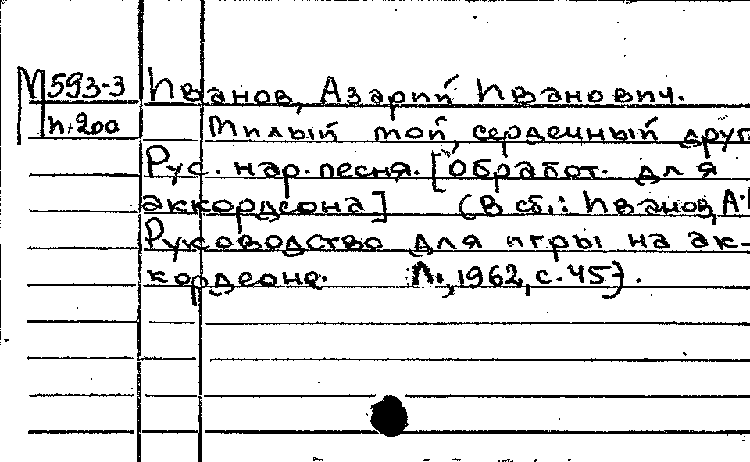 М 593-3 Иванов, Азарий Иванович.
н.200 Милый мой, сердечный друг
Рус. нар. песня. [Обработ. для
аккордеона] (В сб.: Иванов, А.И
Руководство для игры на ак-
кордеоне. Л., 1962, с. 45).